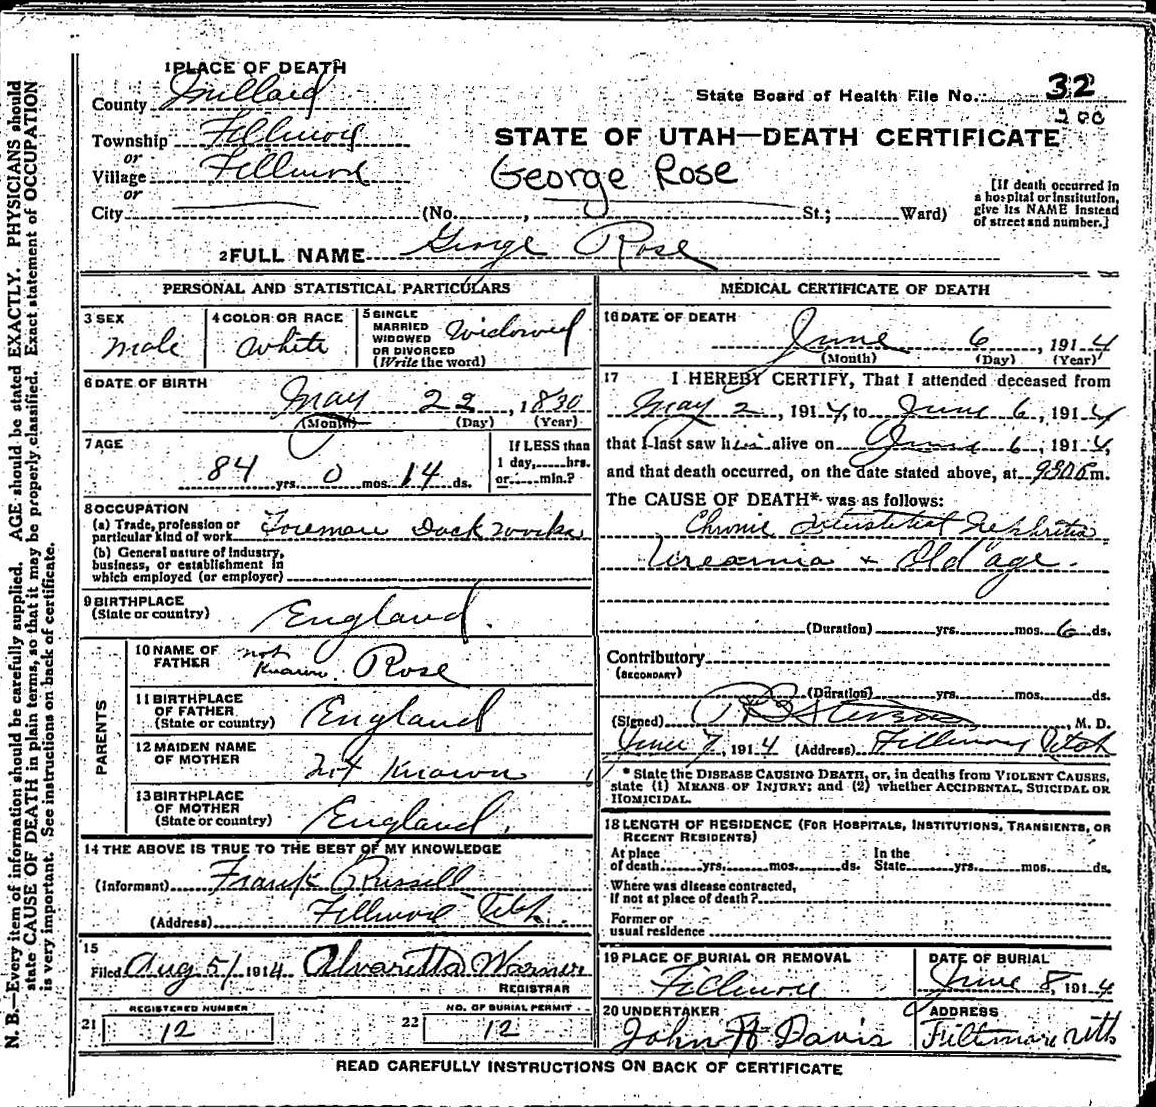 1 PLACE OF DEATH
County Millard
State Board of Health File No. 32
200
Township Fillmore
or
Village Fillmore
or
STATE OF UTAH—DEATH CERTIFICATE
George Rose
City (No. , St.; Ward)
[If death occurred in a hospital or institution, give its NAME instead of street and number.]
2 FULL NAME George Rose
PERSONAL AND STATISTICAL PARTICULARS
3 SEX
Male
4 COLOR OR RACE
White
5 SINGLE MARRIED WIDOWED OR DIVORCED (Write the word)
Widowed
6 DATE OF BIRTH
May 22, 1830
(Month) (Day) (Year)
7 AGE
84 yrs. 0 mos. 14 ds.
If LESS than 1 day, hrs. or min.?
8 OCCUPATION
(a) Trade, profession or particular kind of work Foreman Dock works
(b) General nature of industry, business, or establishment in which employed (or employer)
9 BIRTHPLACE (State or country) England.
PARENTS
10 NAME OF FATHER not Known. Rose
11 BIRTHPLACE OF FATHER (State or country) England
12 MAIDEN NAME OF MOTHER Not Known
13 BIRTHPLACE OF MOTHER (State or country) England.
14 THE ABOVE IS TRUE TO THE BEST OF MY KNOWLEDGE
(Informant) Frank Russell
(Address) Fillmore Utah.
15
Filed Aug 5/ 1914 Alvaretta Warner
REGISTRAR
REGISTERED NUMBER
21 12
NO. OF BURIAL PERMIT
22 12
MEDICAL CERTIFICATE OF DEATH
16 DATE OF DEATH
June 6, 1914
(Month) (Day) (Year)
17 I HEREBY CERTIFY, That I attended deceased from
May 2, 1914, to June 6, 1914
that I last saw him alive on June 6, 1914,
and that death occurred, on the date stated above, at 930 a m.
The CAUSE OF DEATH* was as follows:
Chronic Interstitial Nephritis
Ureamia + Old age.
(Duration) yrs. mos. 6 ds.
Contributory
(SECONDARY)
(Duration) yrs. mos. ds.
(Signed) Stevens, M. D.
June 7, 1914 (Address) Fillmore Utah
* State the DISEASE CAUSING DEATH, or, in deaths from VIOLENT CAUSES, state (1) MEANS OF INJURY; and (2) whether ACCIDENTAL, SUICIDAL OR HOMICIDAL.
18 LENGTH OF RESIDENCE (FOR HOSPITALS, INSTITUTIONS, TRANSIENTS, OR RECENT RESIDENTS)
At place of death yrs. mos. ds. In the State yrs. mos. ds.
Where was disease contracted, if not at place of death?
Former or usual residence
19 PLACE OF BURIAL OR REMOVAL
Fillmore
DATE OF BURIAL
June 8, 1914
20 UNDERTAKER
John H Davis
ADDRESS
Fillmore Utah
READ CAREFULLY INSTRUCTIONS ON BACK OF CERTIFICATE
N. B.—Every item of information should be carefully supplied. AGE should be stated EXACTLY. PHYSICIANS should
state CAUSE OF DEATH in plain terms, so that it may be properly classified. Exact statement of OCCUPATION
is very important. See instructions on back of certificate.